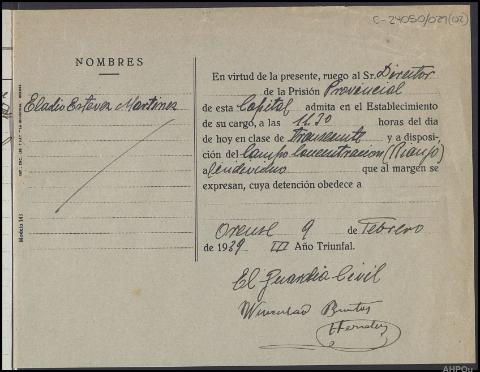 C-24050/029(02)
NOMBRES
Eladio Estevez Martinez
En virtud de la presente, ruego al Sr. Director
de la Prisión Provincial
de esta Capital admita en el Establecimiento
de su cargo, a las 11.30 horas del día
de hoy en clase de transeunte y a disposi-
ción del Campo Concentracion (Rianjo)
al individuo que al margen se
expresan, cuya detención obedece a
Orense 9 de Febrero
de 1939 III Año Triunfal.
El Guardia Civil
Modelo 141
AHPOu